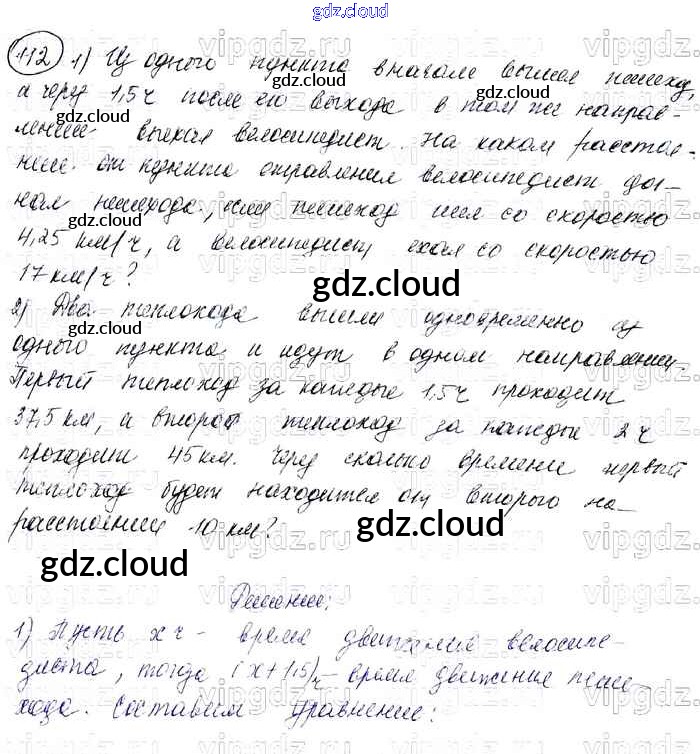 gdz.cloud
112 1) Из одного пункта вначале вышел пешеход,
а через 1,5 ч после его выхода в том же направ-
лении выехал велосипедист. На каком расстоя-
нии от пункта отравления велосипедист дог-
нал пешехода, если пешеход шел со скоростью
4,25 км/ч, а велосипедист ехал со скоростью
17 км/ч?
2) Два теплохода вышли одновременно из
одного пункта и идут в одном направлении.
Первый теплоход за каждые 1,5 ч проходит
37,5 км, а второй теплоход за каждые 2 ч
проходит 45 км. Через сколько времени первый
теплоход будет находится от второго на
расстоянии 10 км?
Решение:
1) Пусть x ч - время движения велосипе-
диста, тогда (x+1,5) ч - время движение пеше-
хода. Составим уравнение: